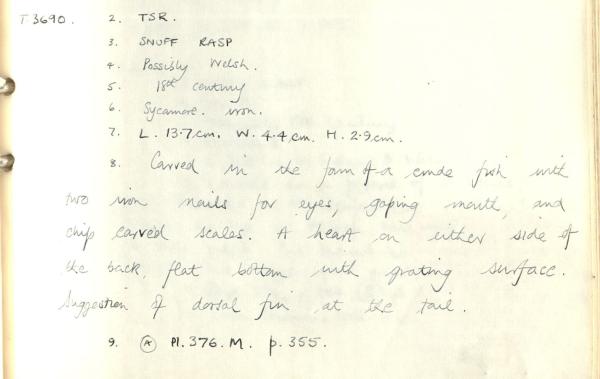 T3690. 2. TSR.
3. SNUFF RASP
4. Possibly Welsh.
5. 18th century
6. Sycamore. iron.
7. L. 13.7cm. W. 4.4cm. H. 2.9cm.
8. Carved in the form of a crude fish with
two iron nails for eyes, gaping mouth, and
chip carved scales. A heart on either side of
the back, flat bottom with grating surface.
Suggestion of dorsal fin at the tail.
9. (A) Pl. 376. M. p. 355.